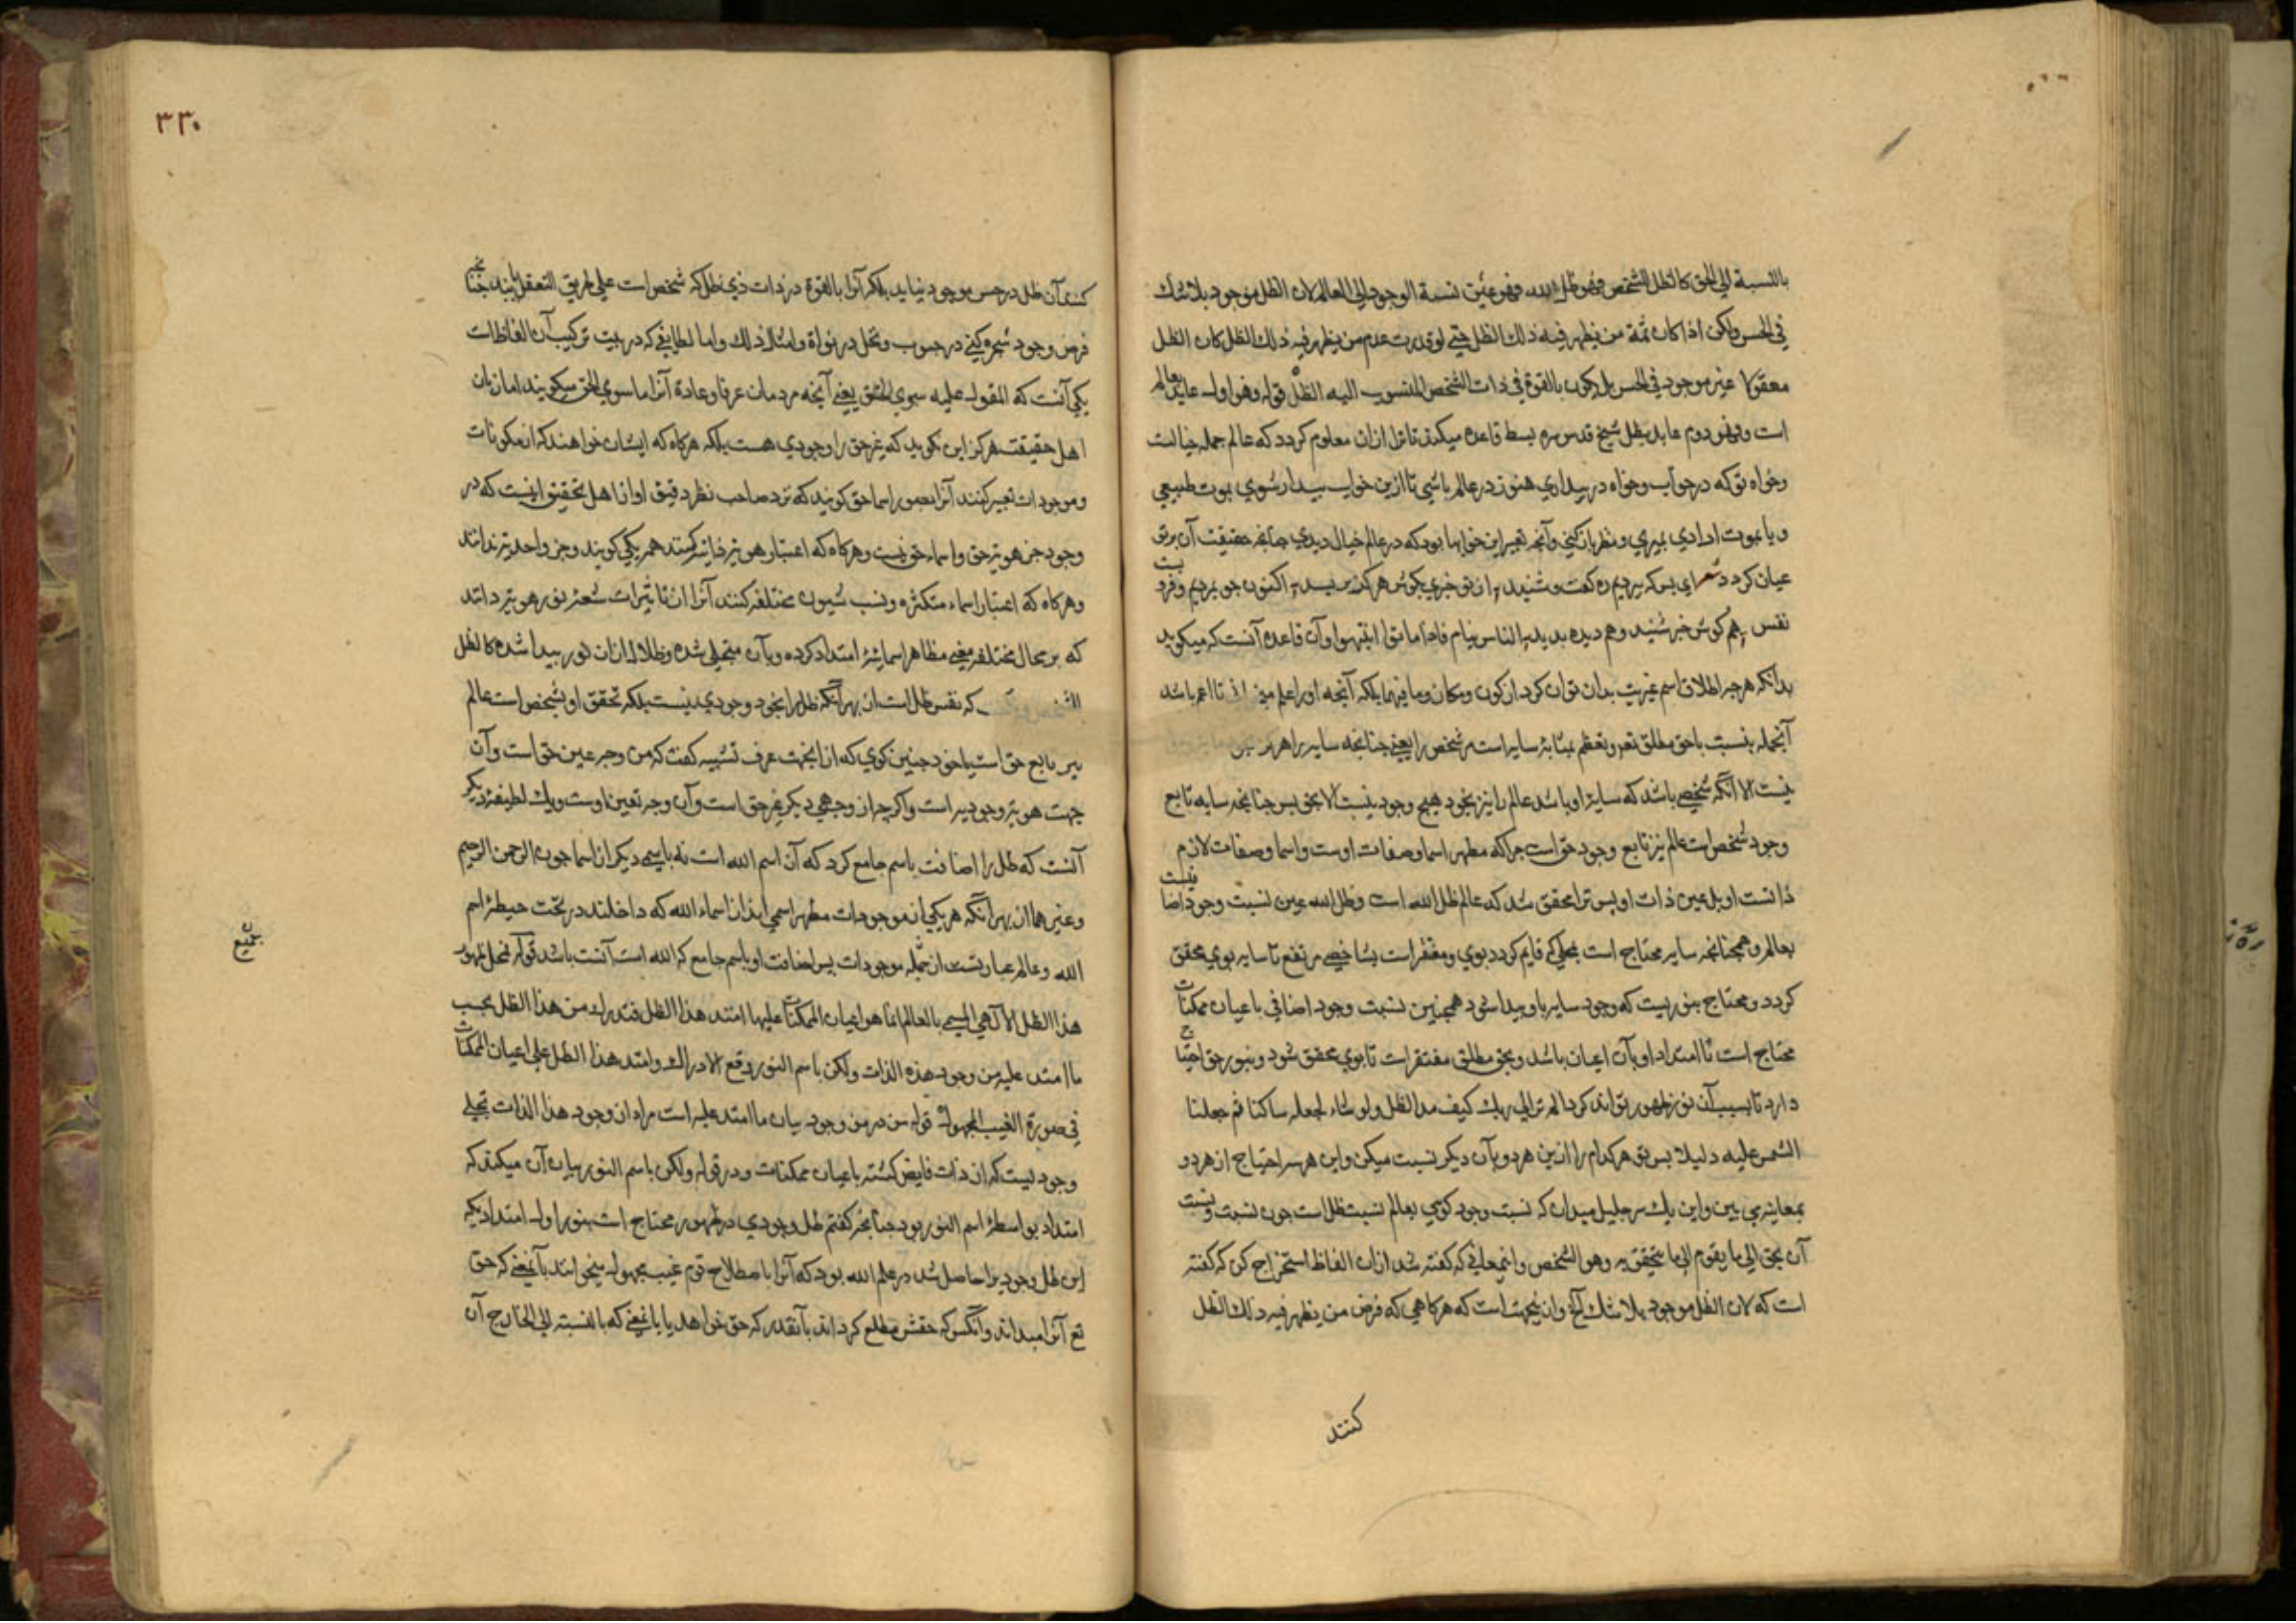 بالنسبة الی الحق کالظل للشخص فهو ظل الله فهو عین نسبة الوجود الی العالم لان الظل موجود بلا شک
فی الحس ولکن اذا کان ثمة من یظهر فیه ذلک الظل حتی لو قدرت عدم من یظهر فیه ذلک الظل کان الظل
معقولا غیر موجود فی الحس بل یکون بالقوة فی ذات الشخص المنسوب الیه الظل قوله وهو اول عاید بعالم
است وفهو دوم عاید بظل شیخ قدس سره بسط قاعده میکند تا ترا ازان معلوم کردد که عالم جمله خیالست
وخواه تو که درخواب وخواه در بیداری هنوز در عالم باشی تا ازین خواب بیدار شوی بموت طبیعی
ویا بموت ارادی بمیری و نظر بازکنی وآنچه تعبیر این خوابها بود که در عالم خیال دیدی چنانچه حقیقت آن برتو
عیان کردد شعر ای بس که بردیم ره کفت وشنید از تو خبری بکوش هرکز نرسید اکنون جو بردیم وفرو بست
نفس هم کوش خبر شنید وهم دیده بدید الناس نیام فاذا ماتوا انتبهوا وآن قاعده آنست که میکوید
بدانکه هرچه اطلاق اسم غیریت بدان توان کرد از کون ومکان وما فیهما بلکه آنچه اورا اعلم من ان تا اعم باشد
آنجمله بنسبت باحق مطلق تعز وتعظم بمثابۀ سایه است مر شخص را یعنی جنانچه سایه را هرکز
نیست الا آنکه شخصی باشد که سایۀ او باشد عالم را نیز بخود هیچ وجود نیست الا بحق بس جنانچه سایه تابع
وجود شخص است عالم نیز تابع وجود حق است جراکه مظهر اسما وصفات اوست واسما وصفات لازم
ذاتست او بل عین ذات او پس ترا محقق شد که عالم ظل الله است وظل الله عین نسبت وجود اضا فیست
بعالم وهمجنانچه سایه محتاج است بمحلی که قایم کردد بوی ومفتقر است بشاخصی مرتفع تا سایه بوی محقق
کردد ومحتاج بنوریست که وجود سایه باو پیدا شود همجنین نسبت وجود اضافی با عیان ممکنات
محتاج است تا امتداد او بآن اعیان باشد وبحق مطلق مفتقر است تا بوی محقق شود وبنور حق احتیاج
دارد تا بسبب آن نور ظهور تواند کرد الم تر الی ربک کیف مد الظل ولو شاء لجعله ساکنا ثم جعلنا
الشمس علیه دلیلا بس تو هرکدام را ازین هر دو بآن دیکر نسبت میکن واین هر سه احتیاج از هر دو
بمعاینه می بین واین یک سر جلیل میدان که نسبت وجود کونی بعالم نسبت ظل است جون نسبت ونیست
آن بحق الی ما یقوم الی ما یتحقق به وهو الشخص واینمعانی که کفته شد ازان الفاظ استخراج کن که کفته
است که لان الظل موجود بلا شک آلخ وازینجهت است که هرکاهی که فرض من یظهر فیه ذلک الظل
کنند
۳۳۰
کنند آن ظل در حس موجود نیاید بلکه آنرا بالقوة در ذات ذی ظل که شخص است علی طریق التعقل یابند جنانچه
فرض وجود شجره کنی در حبوب ونخل در نواة وامثال ذلک واما لطایفی که در هیت ترکیب آن الفاظات
یکی آنست که المقول علیه سوی الحق یعنی آنچه مردمان عرفا وعادة آنرا ما سوی الحق میکویند اما زبان
اهل حقیقت هرکز این نکوید که غیر حق را وجودی هست بلکه هرکاه که ایشان خواهند که از مکونات
وموجودات تعبیر کنند آنرا بصور اسما حق کویند که نزد صاحب نظر دقیق او از اهل تحقیق اینست که در
وجود جز هویت حق واسماء حق نیست وهرکاه که اعتبار هویت ذاتیه کنند همه یکی کویند وجز واحدیت ندانند
وهرکاه که اعتبار اسماء متکثره ونسب شیون مختلفه کنند آنرا از تاثیرات شعۀ نور هویت دانند
که بر محال مختلفه یعنی مظاهر اسمائیۀ امتداد کرده وبآن متجلی شده وظلال ازان نور پیدا شده کالظل
که نفس ظل است از بهر آنکه ظل را بخود وجودی نیست بلکه تحقق او بشخص است عالم
نیز تابع حق است یا خود جنین کوی که از اینجهت عرف تشبیه کفت که من وجه عین حق است وآن
جهت هویت وجودیه است واکرجه از وجهی دیکر غیر حق است وآن وجه تعین اوست ویک لطیفۀ دیکر
آنست که ظل را اضافت باسم جامع کرد که آن اسم الله است نه باسمی دیکر از اسما جون الرحمن الرحیم
وغیر هما از بهر آنکه هر یکی از موجودات مظهر اسمی اند از اسماء الله که داخلند در تحت حیطۀ اسم
الله وعالم عبارتست از جمله موجودات بس اضافت او باسم جامع که الله است آنست باشد قوله فمحل ظهور
هذا الظل الالهی المسمی بالعالم انما هو اعیان الممکنات علیها امتد هذا الظل فتدرک من هذا الظل بحسب
ما امتد علیه من وجود هذه الذات ولکن باسم النور وقع الادراک وامتد هذا الظل علی اعیان الممکنات
فی صورة الغیب المجهول قوله من در من وجود بیان ما امتد علیه است مراد ان وجود هذا الذات تجلی
وجودیست که از ذات فایض کشته باعیان ممکنات ودر قوله ولکن باسم النور بیان آن میکند که
امتداد بواسطۀ اسم النور بود جنانچه کفتم ظل وجودی در ظهور محتاج است بنور اول امتدادیکه
این ظل وجودیرا حاصل شد در علم الله بود که آنرا باصطلاح قوم غیب مجهول میخوانند بآنمعنی که حق
تع آنرا میداند وآنکس که حقش مطلع کرداند بآنقدر که حق خواهد یا باینمعنی که بالنسبته الی الخارج آن